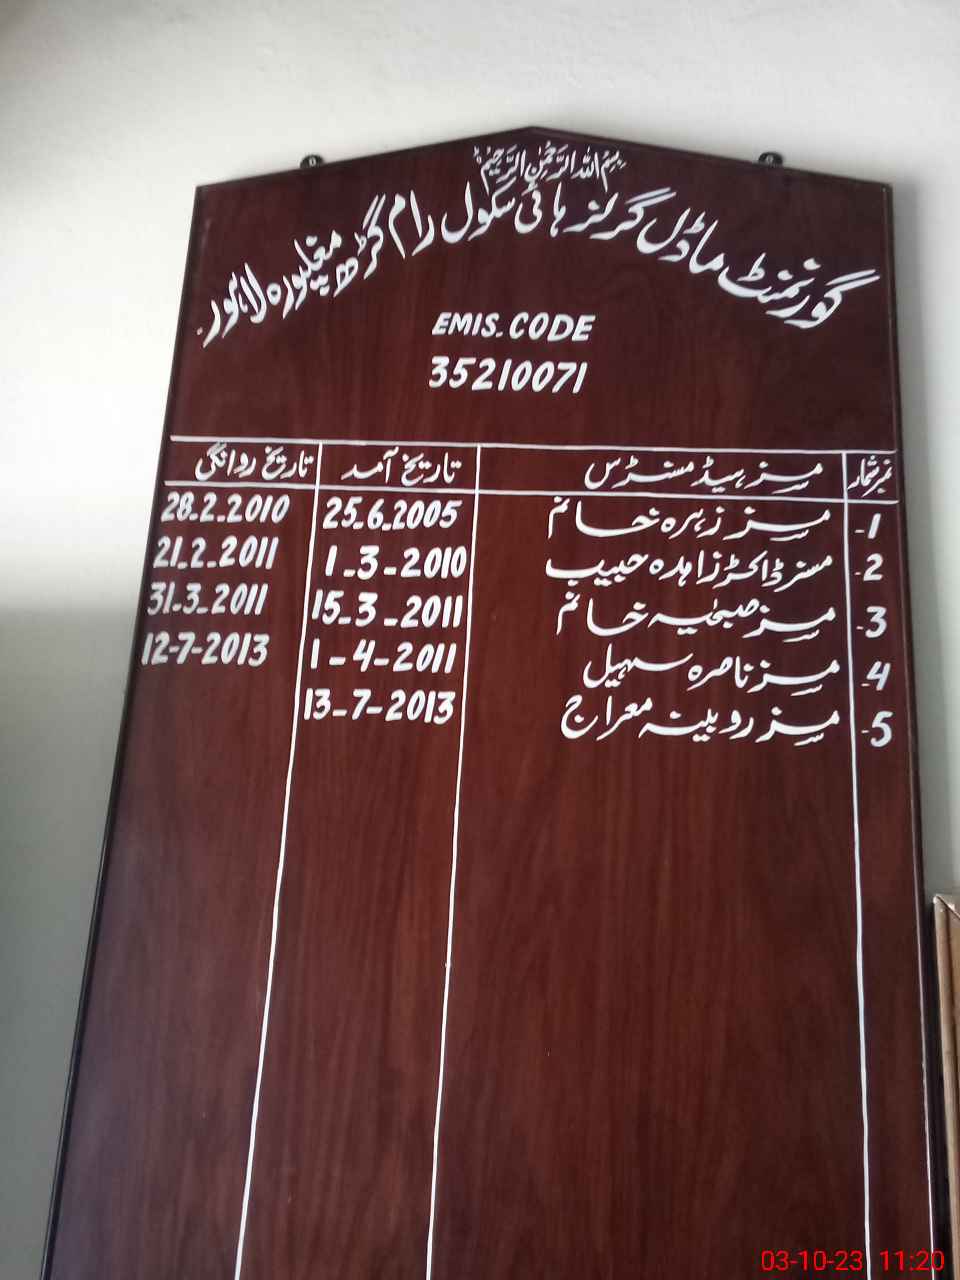 بِسْمِ اللہِ الرَّحْمٰنِ الرَّحِیْمِ
گورنمنٹ ماڈل گرلز ہائی سکول رام گڑھ مغلپورہ لاہور۔
EMIS. CODE
35210071
نمبر شمار مسز ہیڈ مسٹرس تاریخ آمد تاریخ روانگی
1- مسز زہرہ خانم 25.6.2005 28.2.2010
2- مسز ڈاکٹر زاہدہ حبیب 1-3-2010 21.2-2011
3- مسز صبیحہ خانم 15-3-2011 31.3-2011
4- مسز ناصرہ سہیل 1-4-2011 12-7-2013
5- مسز روبینہ معراج 13-7-2013
03-10-23 11:20